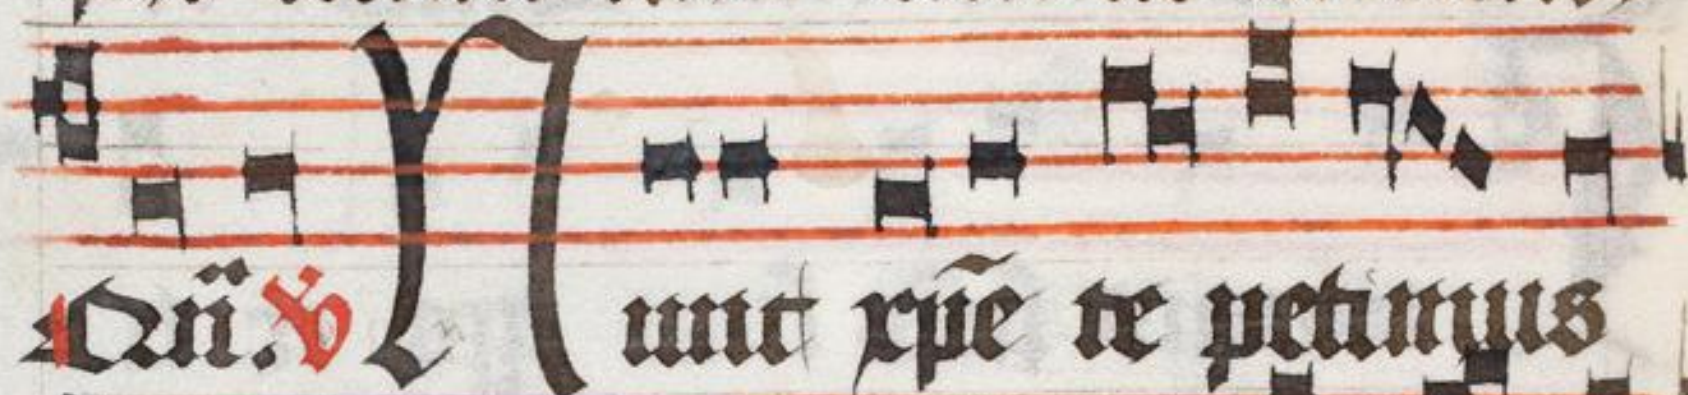 Qui. V Nunc xpē te petimus